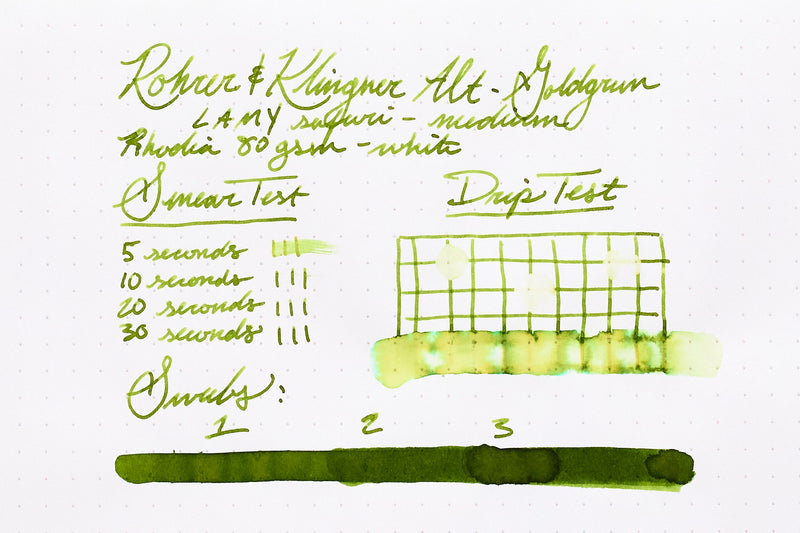 Rohrer & Klingner Alt-Goldgrun
LAMY safari - medium
Rhodia 80 gsm - white
Smear Test
5 seconds
10 seconds
20 seconds
30 seconds
Drip Test
Swabs:
1 2 3